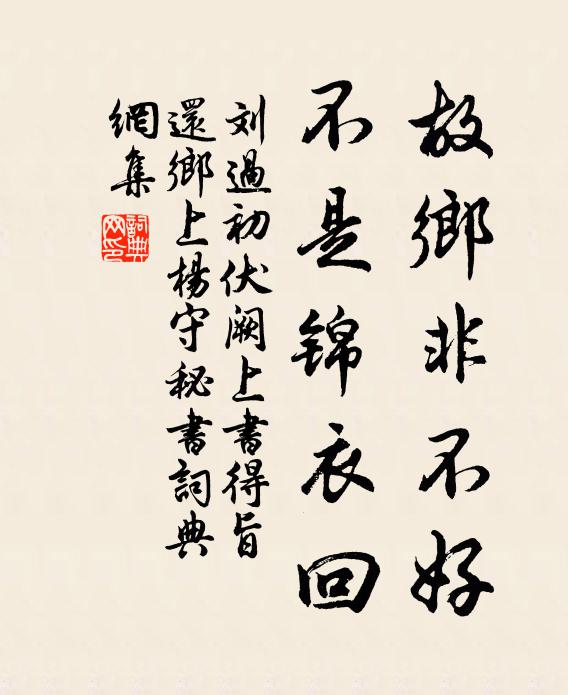 故鄉非不好
不是錦衣回
刘過初伏闕上書得旨
還鄉上楊守秘書詞典
網集
詞典
网印